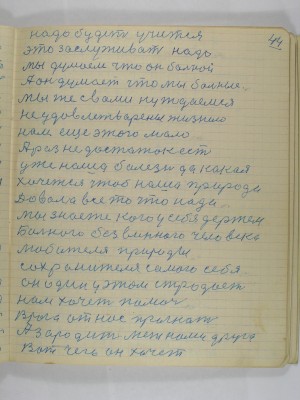 44
надо будит учится
это заслуживать надо
мы думаем что он болной
А он думает что мы болные
мы же с вами нуждаемся
неудовлетворены жизнею
нам еще этого мало
А раз недостаток есть
уже наша болезнь да какая
хочется чтоб наша природа
довала все то что надо
мы знаете кого у себя держем
болного безвинного человека
любителя природы
сохранителя самого себя
он один у этом страдает
нам хочет помоч
врага от нас прогнать
А зародить меж нами друга
Вот чего он хочет